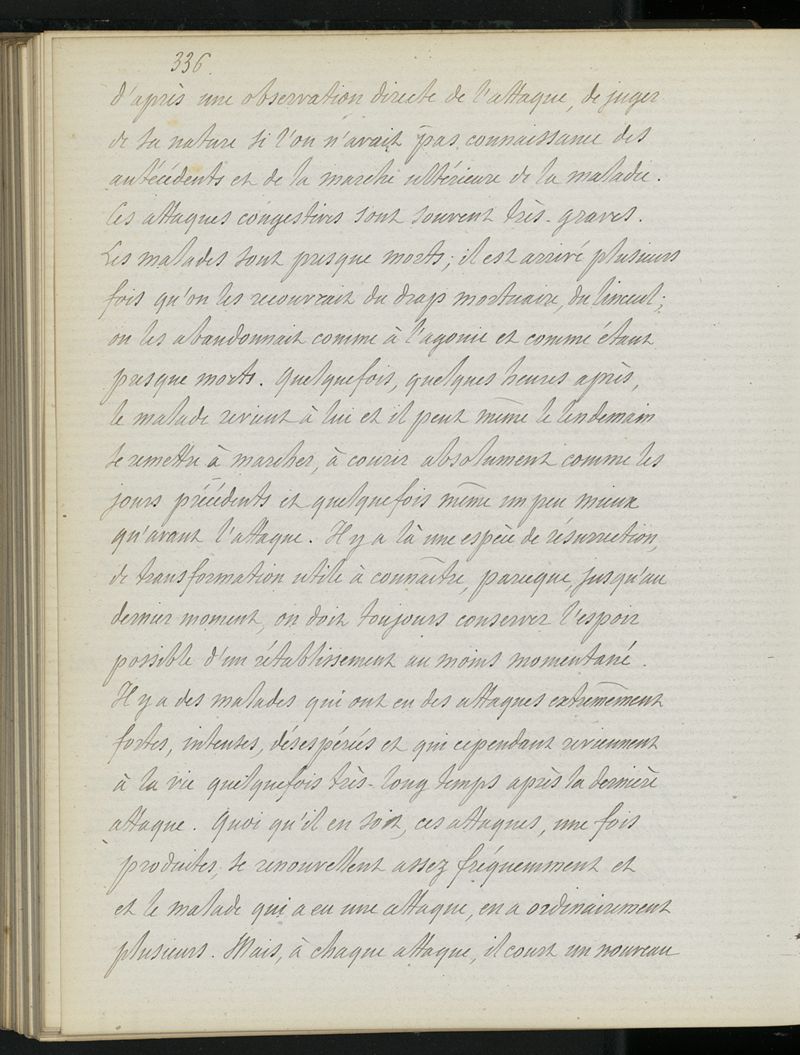 336.
d'après une observation directe de l'attaque, de juger
de sa nature si l'on n'avait pas connaissance des
antécédents et de la marche ultérieure de la maladie.
Ces attaques congestives sont souvent très-graves.
Les malades sont presque morts; il est arrivé plusieurs
fois qu'on les recouvrait du drap mortuaire, du linceul;
on les abandonnait comme à l'agonie et comme étant
presque morts. Quelquefois, quelques heures après,
le malade revient à lui et il peut même le lendemain
se remettre à marcher, à courir absolument comme les
jours précédents et quelquefois même un peu mieux
qu'avant l'attaque. Il y a là une espèce de résurrection,
de transformation utile à connaître, parceque, jusqu'au
dernier moment, on doit toujours conserver l'espoir
possible d'un rétablissement au moins momentané.
Il y a des malades qui ont eu des attaques extrêmement
fortes, intenses, désespérées et qui cependant reviennent
à la vie quelquefois très-long temps après la dernière
attaque. Quoi qu'il en soit, ces attaques, une fois
produites, se renouvellent assez fréquemment et
et le malade qui a eu une attaque, en a ordinairement
plusieurs. Mais, à chaque attaque, il court un nouveau